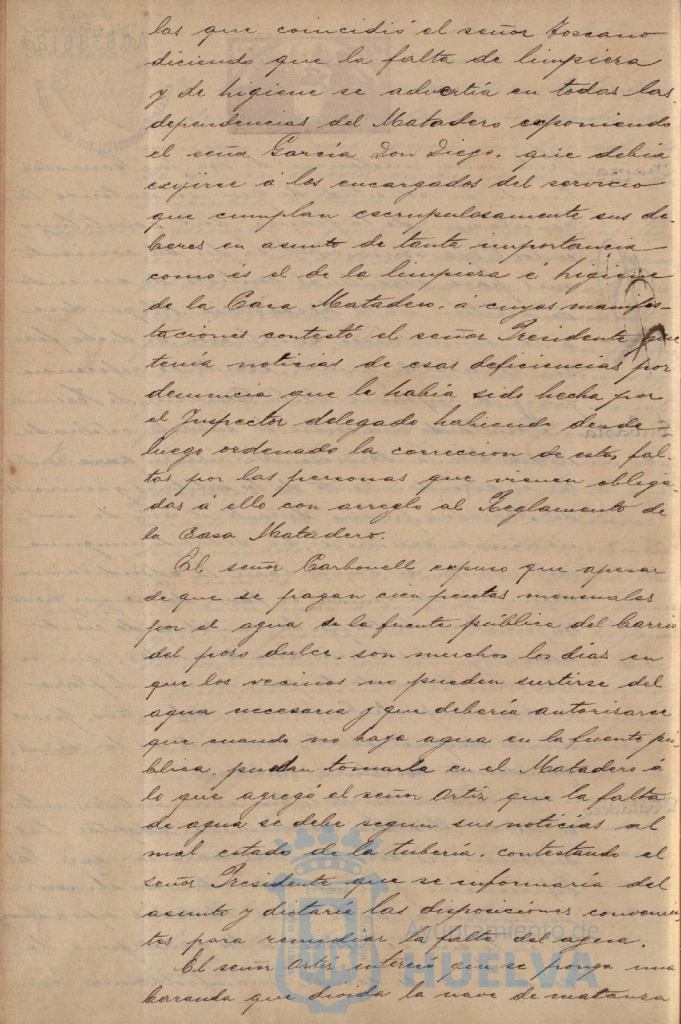 las que coincidió el señor Toscano
diciendo que la falta de limpieza
y de higiene se advertía en todas las
dependencias del Matadero exponiendo
el señor García Don Diego, que debia
exijirse á los encargados del servicio
que cumplan escrupulosamente sus de-
beres en asunto de tanta importancia
como és el de la limpieza é higiene
de la Casa Matadero, á cuyas manifes-
taciones contestó el señor Presidente que
tenía noticias de esas deficiencias por
denuncia que le había sido hecha por
el Inspector delegado habiendo desde
luego ordenado la correccion de estas fal-
tas por las personas que vienen obliga-
das á ello con arreglo al Reglamento de
la Casa Matadero.
El señor Carbonell expuso que apesar
de que se pagan cien pesetas mensuales
por el agua de la fuente pública del barrio
del pozo dulce, son muchos los dias en
que los vecinos no pueden surtirse del
agua necesaria y que debería autorisarse
que cuando no haya agua en la fuente pú-
blica, puedan tomarla en el Matadero á
lo que agregó el señor Ortiz que la falta
de agua se debe segun sus noticias al
mal estado de la tubería, contestando el
señor Presidente que se informaría del
asunto y dictaría las disposiciones convenien-
tes para remediar la falta del agua.
El señor Ortiz interesó que se ponga una
baranda que divida la nave de matanza
Ayuntamiento de
HUELVA